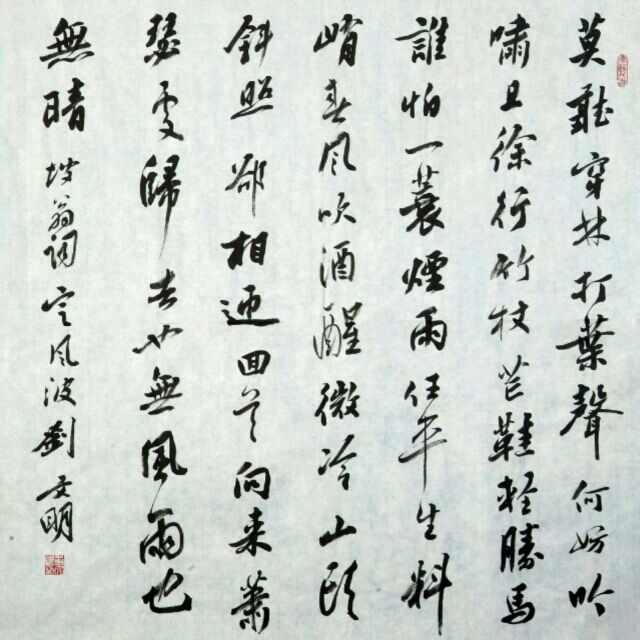 莫聽穿林打葉聲何妨吟
嘯且徐行竹杖芒鞋輕勝馬
誰怕一蓑煙雨任平生料
峭春风吹酒醒微冷山頭
斜照卻相迎回首向来蕭
瑟處歸去也無風雨也
無晴 坡翁词定风波劉文明